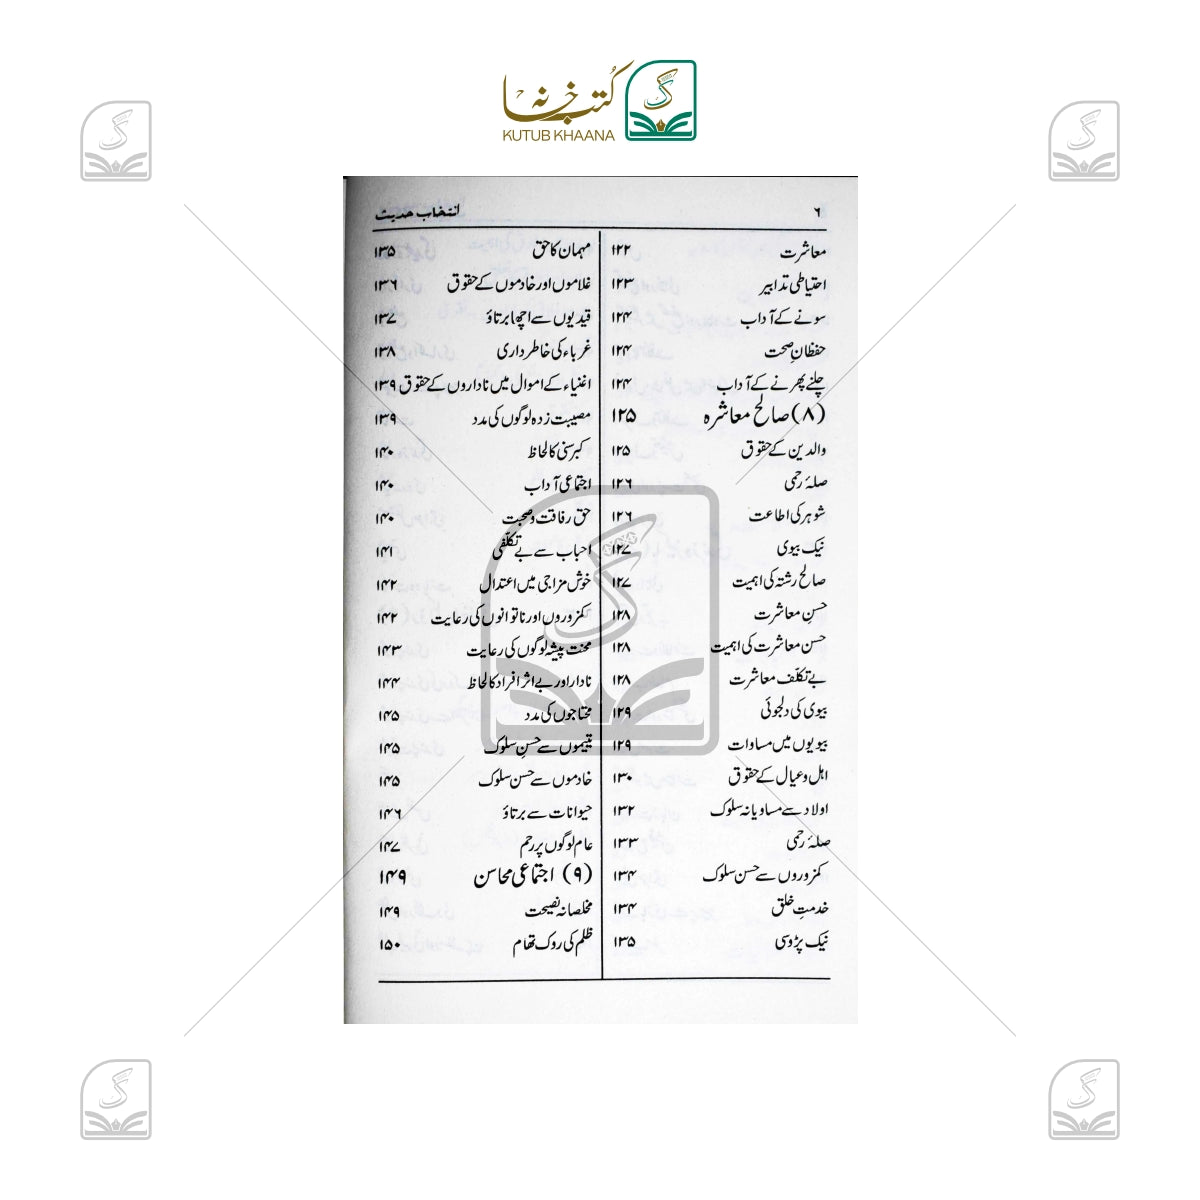 کتب خانہ
KUTUB KHAANA
۶
انتخاب حدیث
معاشرت ۱۲۲
احتیاطی تدابیر ۱۲۳
سونے کے آداب ۱۲۴
حفظانِ صحت ۱۲۴
چلنے پھرنے کے آداب ۱۲۴
(۸) صالح معاشرہ ۱۲۵
والدین کے حقوق ۱۲۵
صلۂ رحمی ۱۲۶
شوہر کی اطاعت ۱۲۶
نیک بیوی ۱۲۷
صالح رشتہ کی اہمیت ۱۲۷
حسنِ معاشرت ۱۲۸
حسن معاشرت کی اہمیت ۱۲۸
بے تکلّف معاشرت ۱۲۸
بیوی کی دلجوئی ۱۲۹
بیویوں میں مساوات ۱۲۹
اہل وعیال کے حقوق ۱۳۰
اولاد سے مساویانہ سلوک ۱۳۲
صلۂ رحمی ۱۳۳
کمزوروں سے حسن سلوک ۱۳۴
خدمتِ خلق ۱۳۴
نیک پڑوسی ۱۳۵
مہمان کا حق ۱۳۵
غلاموں اور خادموں کے حقوق ۱۳۶
قیدیوں سے اچھا برتاؤ ۱۳۷
غرباء کی خاطر داری ۱۳۸
اغنیاء کے اموال میں ناداروں کے حقوق ۱۳۹
مصیبت زدہ لوگوں کی مدد ۱۳۹
کبر سنی کا لحاظ ۱۴۰
اجتماعی آداب ۱۴۰
حق رفاقت وصحبت ۱۴۰
احباب سے بے تکلّفی ۱۴۱
خوش مزاجی میں اعتدال ۱۴۲
کمزوروں اور ناتوانوں کی رعایت ۱۴۲
محنت پیشہ لوگوں کی رعایت ۱۴۳
نادار اور بے اثر افراد کا لحاظ ۱۴۴
محتاجوں کی مدد ۱۴۵
یتیموں سے حسنِ سلوک ۱۴۵
خادموں سے حسن سلوک ۱۴۵
حیوانات سے برتاؤ ۱۴۶
عام لوگوں پر رحم ۱۴۷
(۹) اجتماعی محاسن ۱۴۹
مخلصانہ نصیحت ۱۴۹
ظلم کی روک تھام ۱۵۰